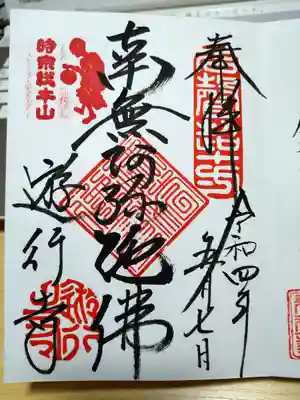 奉拝
令和四年
五月七日
南無阿弥陀佛
時宗総本山
遊行寺